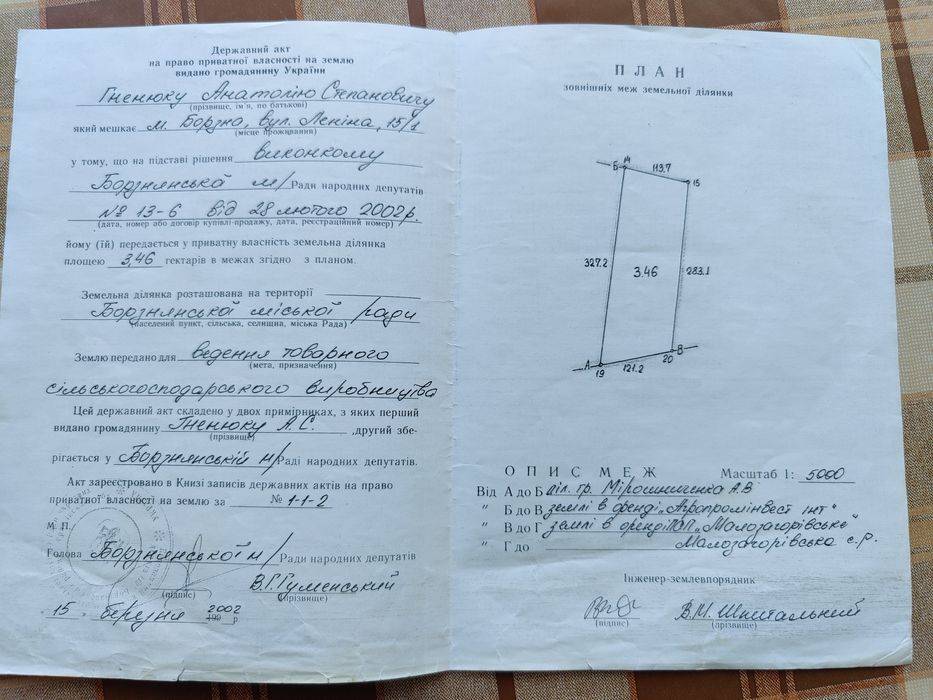 Державний акт
на право приватної власності на землю
видано громадянину України
Гненюку Анатолію Степановичу
(прізвище, ім'я, по батькові)
який мешкає м. Борзна, вул. Леніна, 15/1
(місце проживання)
у тому, що на підставі рішення виконкому
Борзнянської м/Ради народних депутатів
№ 13-6 від 28 лютого 2002 р.
(дата, номер або договір купівлі-продажу, дата, реєстраційний номер)
йому (їй) передається у приватну власність земельна ділянка
площею 3,46 гектарів в межах згідно з планом.
Земельна ділянка розташована на території
Борзнянської міської ради
(населений пункт, сільська, селищна, міська Рада)
Землю передано для ведення товарного
(мета, призначення)
сільськогосподарського виробництва
Цей державний акт складено у двох примірниках, з яких перший
видано громадянину Гненюку А.С. ,другий збе-
(прізвище)
рігається у Борзнянській м/Раді народних депутатів.
Акт зареєстровано в Книзі записів державних актів на право
приватної власності на землю за № 1-1-2
М. П.
Голова Борзнянської м/Ради народних депутатів
В.Г.Гуменський
(підпис) (прізвище)
15 березня 2002
199 р
ПЛАН
зовнішніх меж земельної ділянки
Б 14 113,7 15
327.2 3.46 283.1
А 19 121.2 20 В
ОПИС МЕЖ Масштаб 1: 5000
Від А до Б діл. гр. Мірошниченка А.В
" Б до В землі в оренді „Агропромінвест інт"
" В до Г землі в оренді ПОП „Малозагорівське"
" Г до Малозагорівська с.р.
Інженер-землевпорядник
В.М. Шкитальний
(підпис) (прізвище)